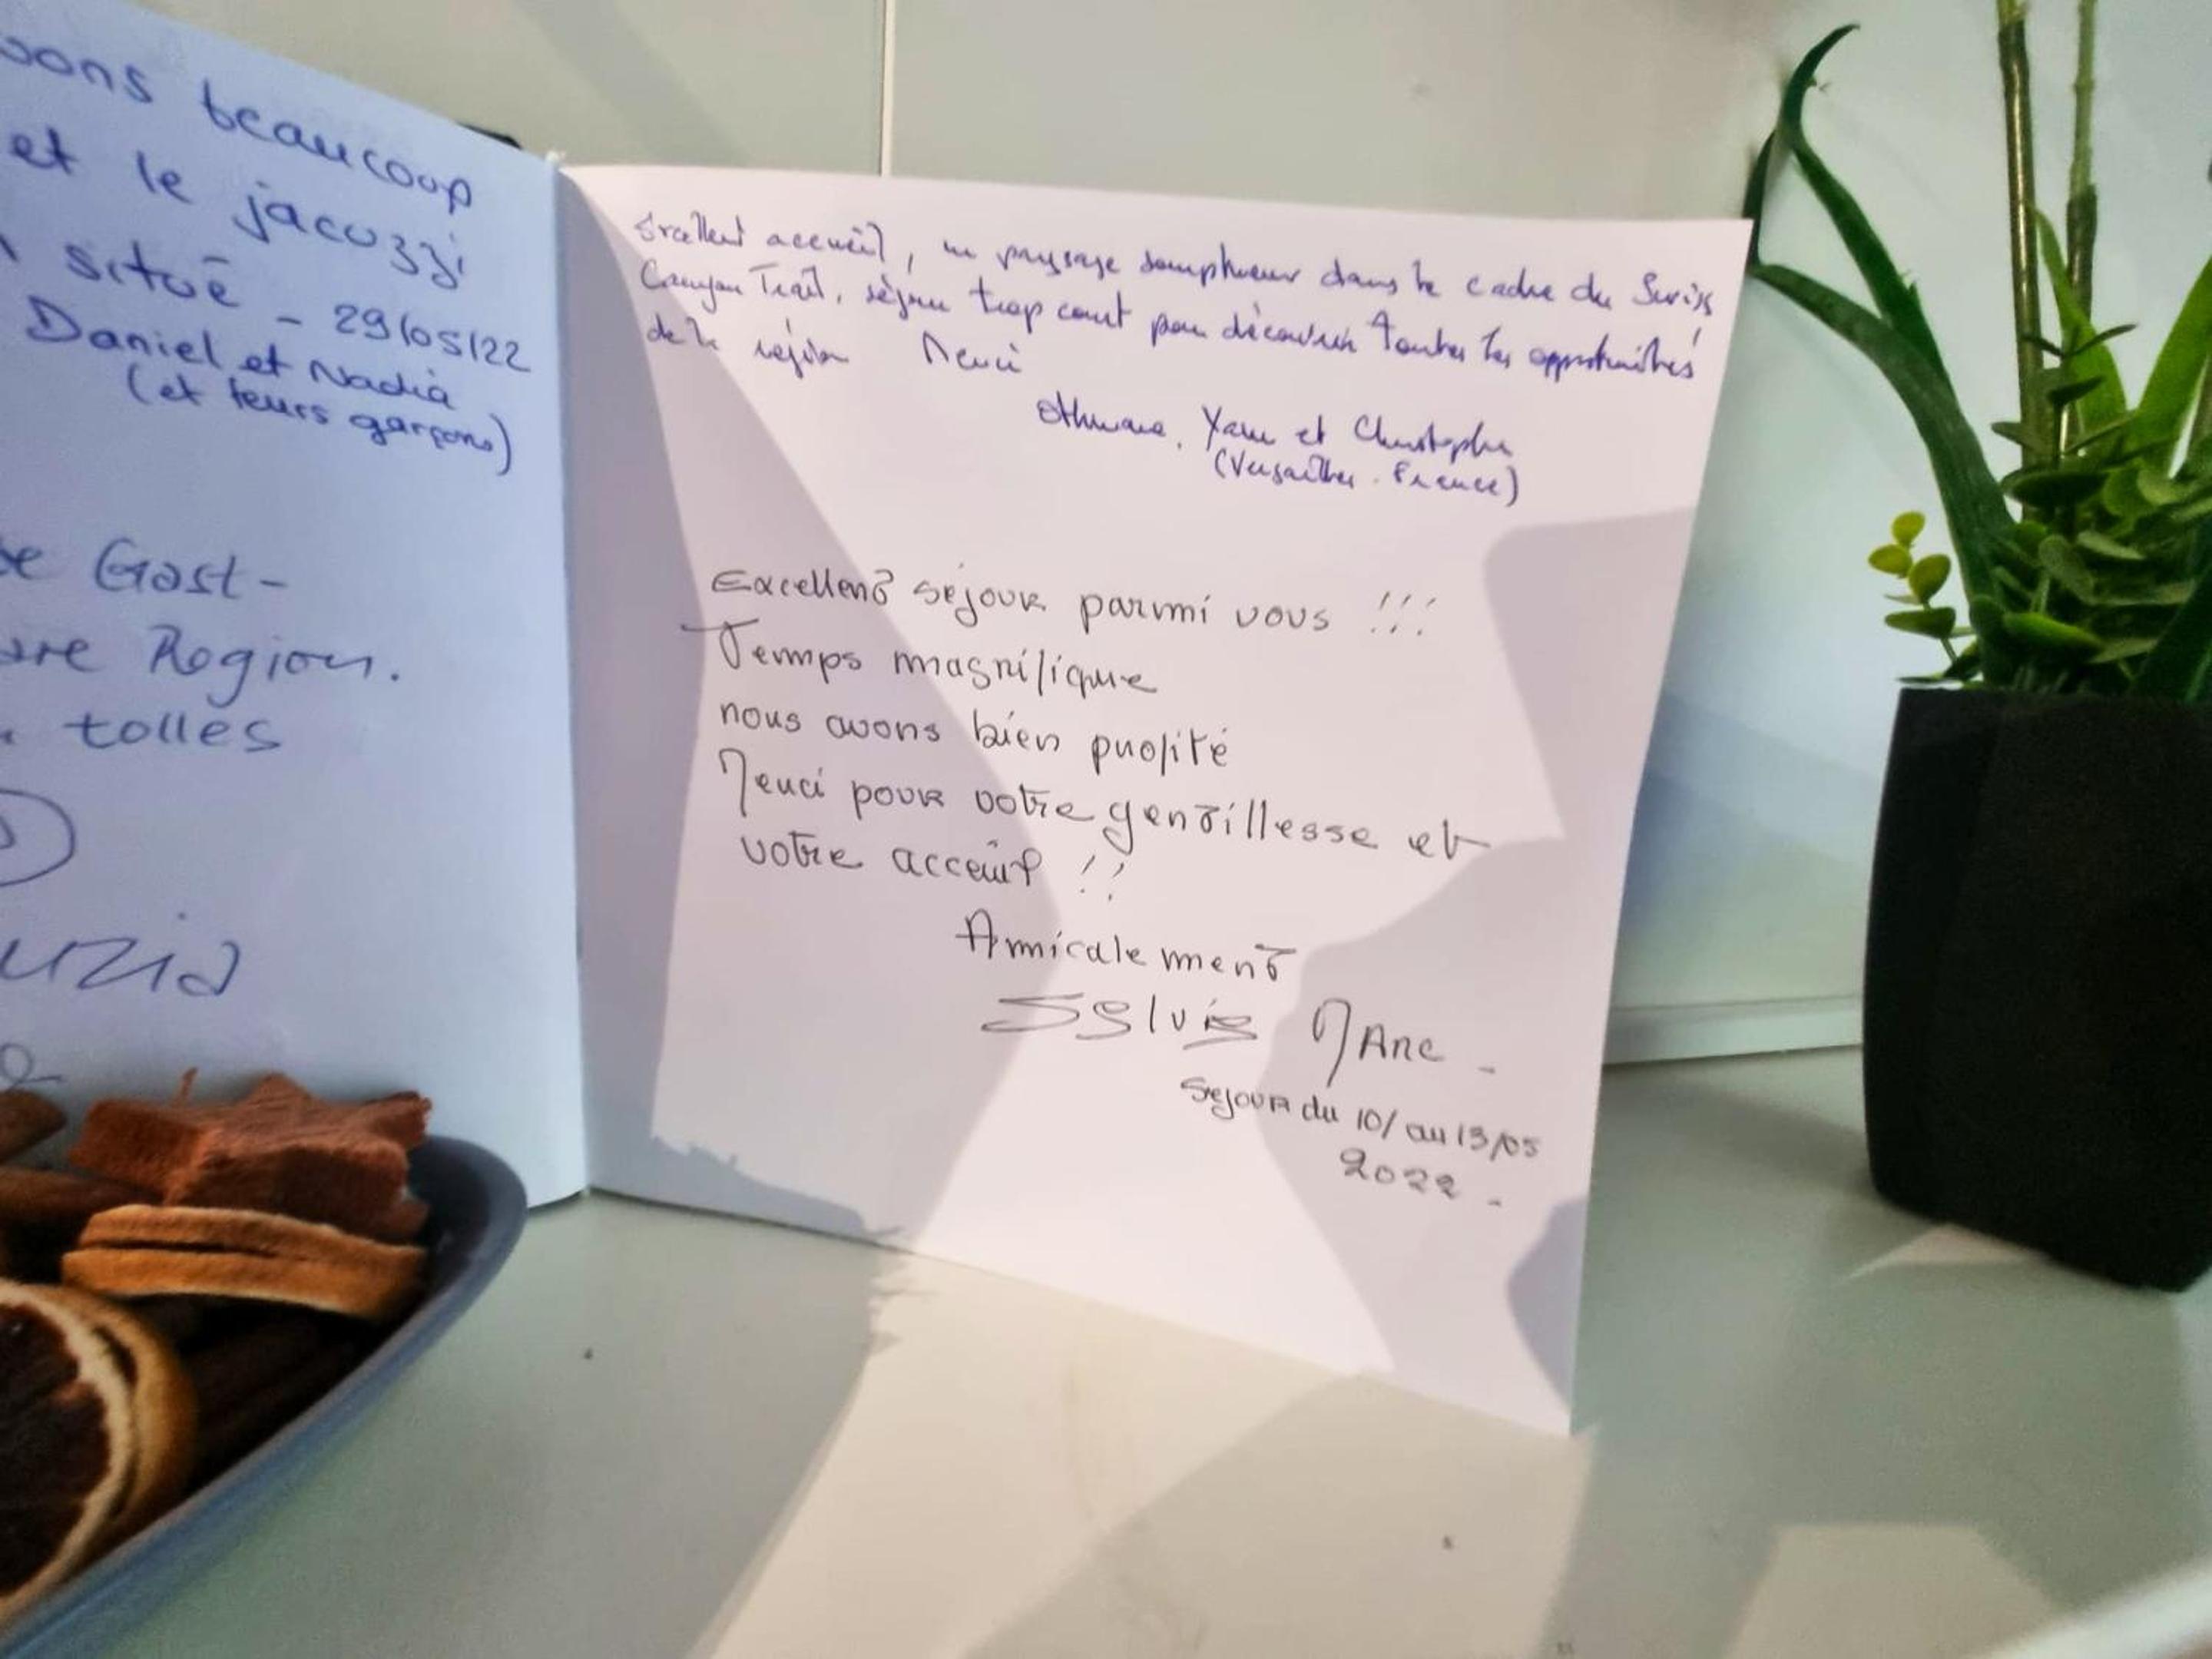 beaucoup
et le jacuzzi
situé - 29/05/22
Daniel et Nadia
(et leurs garçons)
Gast-
Region.
tolles
Excellent accueil, un paysage somptueux dans le cadre du Swiss
Canyon Trail, séjour trop court pour découvrir toutes les opportunités
de la région Merci
Othmane, Yann et Christophe
(Versailles. France)
Excellent séjour parmi vous !!!
Temps magnifique
nous avons bien profité
Merci pour votre gentillesse et
votre acceuil !!
Amicalement
Sylvie Marc -
Sejour du 10/ au 13/05
2022 -